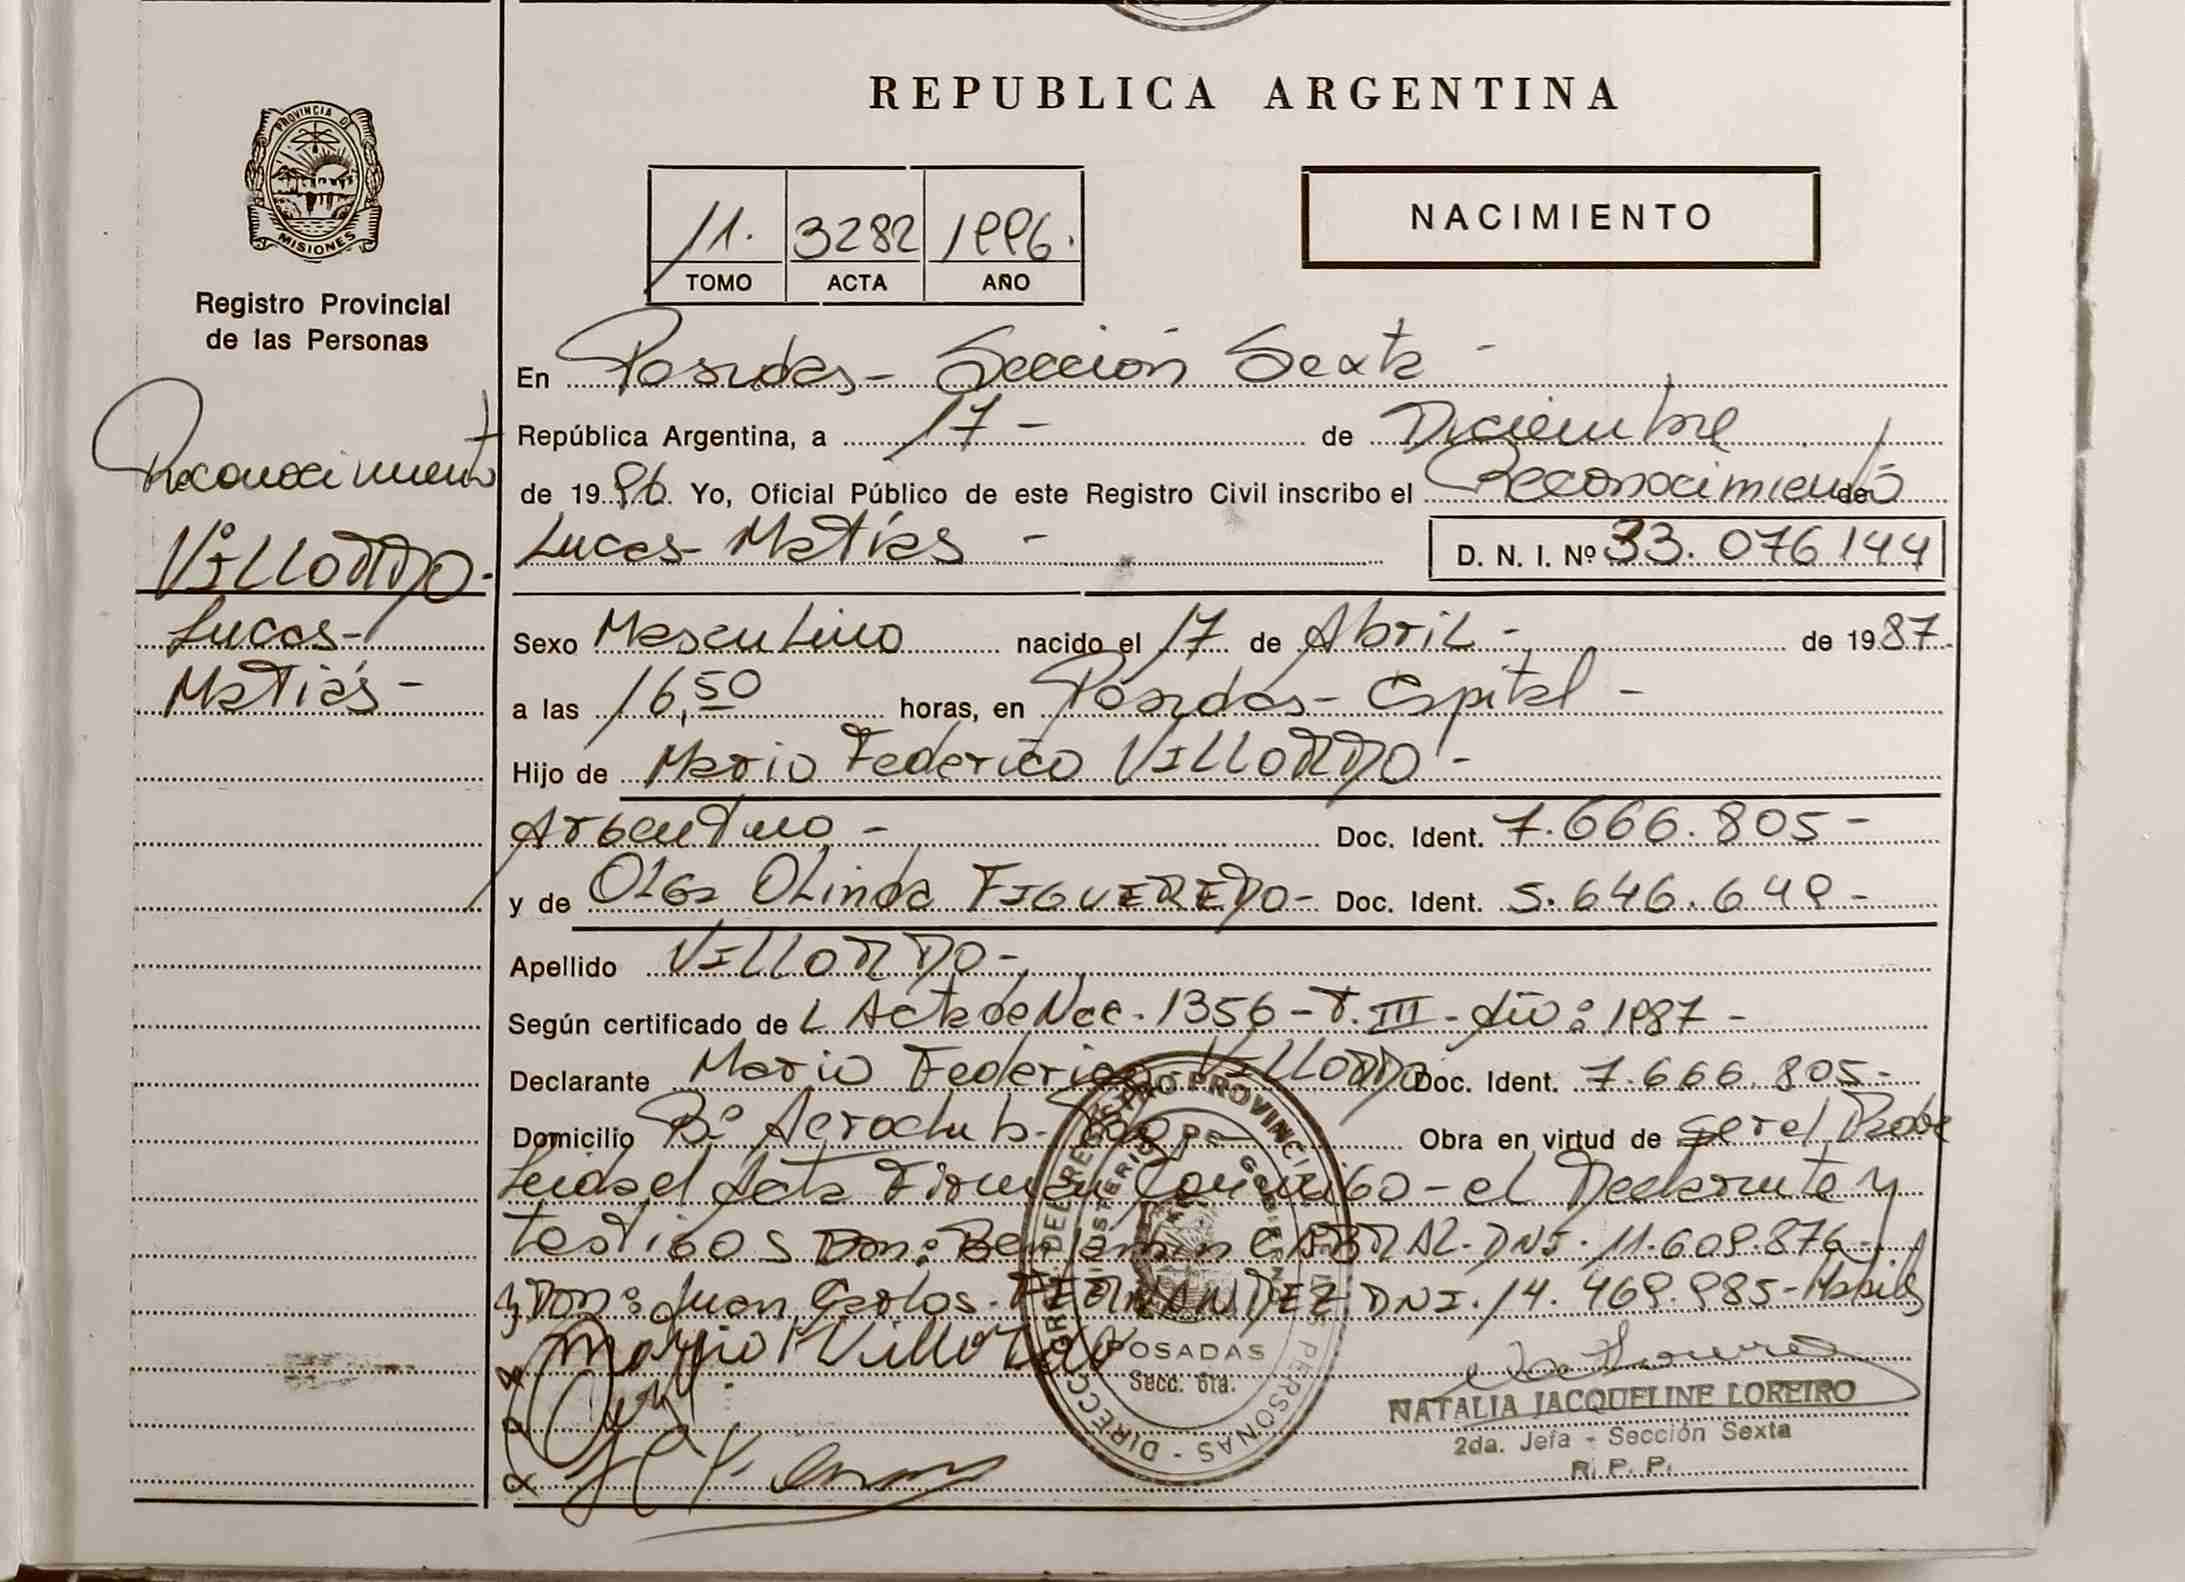 REPUBLICA ARGENTINA
PROVINCIA DE
MISIONES
Registro Provincial
de las Personas
11. 3282 1996.
TOMO ACTA AÑO
NACIMIENTO
Reconocimiento
VILLORDO-
Lucas-
Matías-
En Posadas- Sección Sexta -
República Argentina, a 17 - de Diciembre
de 1996. Yo, Oficial Público de este Registro Civil inscribo el Reconocimiento de
Lucas Matías - D. N. I. Nº 33.076144
Sexo Masculino nacido el 17 de Abril - de 1987-
a las 16,50 horas, en Posadas- Capital -
Hijo de Mario Federico VILLORDO -
Argentino - Doc. Ident. 7.666.805-
y de Olga Olinda FIGUEREDO- Doc. Ident. 5.646.649-
Apellido VILLORDO-
Según certificado de L Acta de Nac. 1356-T.III- Año: 1987-
Declarante Mario Federico VILLORDO Doc. Ident. 7.666.805-
Domicilio Bº Aeroclub- Obra en virtud de ser el Proge
Leida el Acta Firman Conmigo- el Declarante y
testigos Don: Benjamin CABRAL- DNI. 11.609.876-
y Don: Juan Carlos FERNANDEZ DNI. 14.469.985- Habiles
Mario F Villordo
DIRECCION GRAL. DEL REGISTRO PROVINCIAL DE LAS PERSONAS
MINISTERIO DE GOBIERNO
POSADAS
Secc. 6ta.
NATALIA JACQUELINE LOREIRO
2da. Jefa - Sección Sexta
R. P. P.